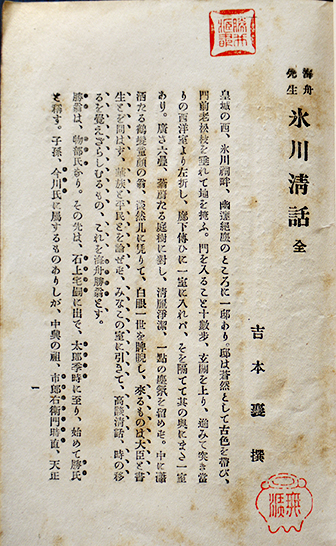 海舟
先生
氷川清話 全
吉本襄 撰
皇城の西、氷川祠畔、幽邃絶塵のところに一邸あり。邸は蒼然として古色を帶び、
門前老松枝を垂れて地を掩ふ。門を入ること十數步、玄關を上り、進みて突き當
りの西洋室より左折し、廊下傳ひに一室に入れバ、そを隔てて其の奧にまさ一室
あり。廣さ六疊、蓊蔚たる庭樹に對し、淸風淨潔、一點の塵氛を留めず。中に瀟
洒たる鶴髮童顏の翁、淡然几に凭りて、白眼一世を睥睨し、來るものは大臣と書
生とを問はず、華族と平民とを論ぜず、みなこの室に引きて、高談淸話、時の移
るを覺えざらしむるもの、これを海舟勝翁とす。
勝翁は、物部氏なり。その先は、石上宅嗣に出で、太郎季時に至り、始めて勝氏
と稱す。子孫、今川氏に屬するものありしが、中興の祖 市郎右衞門時直、天正
一